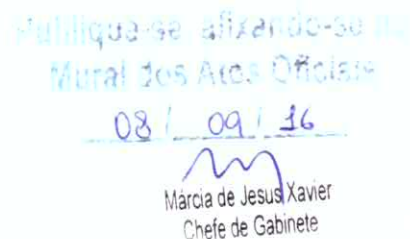 Publique-se afixando-se no
Mural dos Atos Oficiais
08 / 09 / 16
Márcia de Jesus Xavier
Chefe de Gabinete